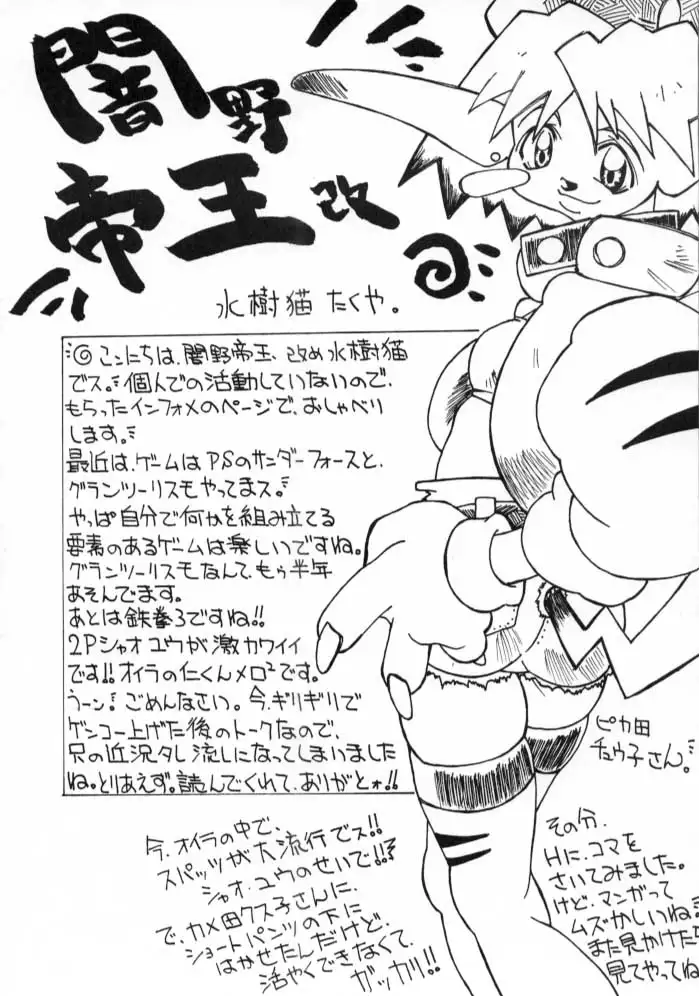 闇野
帝王改
水樹猫 たくや。
◎こンにちは、闇野帝王、改め水樹猫
でス。個人での活動していないので、
もらったインフォメのページで、おしゃべり
します。
最近は、ゲームはPSのサンダーフォースと、
グランツーリスモやってまス。
やっぱ自分で何かを組み立てる
要素のあるゲームは楽しいですね。
グランツーリスモなんて、もぅ半年
あそんでます。
あとは鉄拳3ですね!!
2Pシャオユウが激カワイイ
です!!オイラの仁くんメロ²です。
うーン!ごめんなさい。今、ギリギリで
ゲンコー上げた後のトークなので、
只の近況タレ流しになってしまいました
ね。とりあえず。読んでくれて、ありがとォ!!
ピカ田
チュウ子さん。
今、オイラの中で、
スパッツが大流行でス!!
シャオ・ユウのせいで!!
で、カメ田クス子さんに、
ショートパンツの下に
はかせたんだけど、
活やくできなくて、
ガッカリ!!
その分、
Hに、コマを
さいてみました。
けど、マンガって
ムズかしいね!
また見かけたら
見てやってね